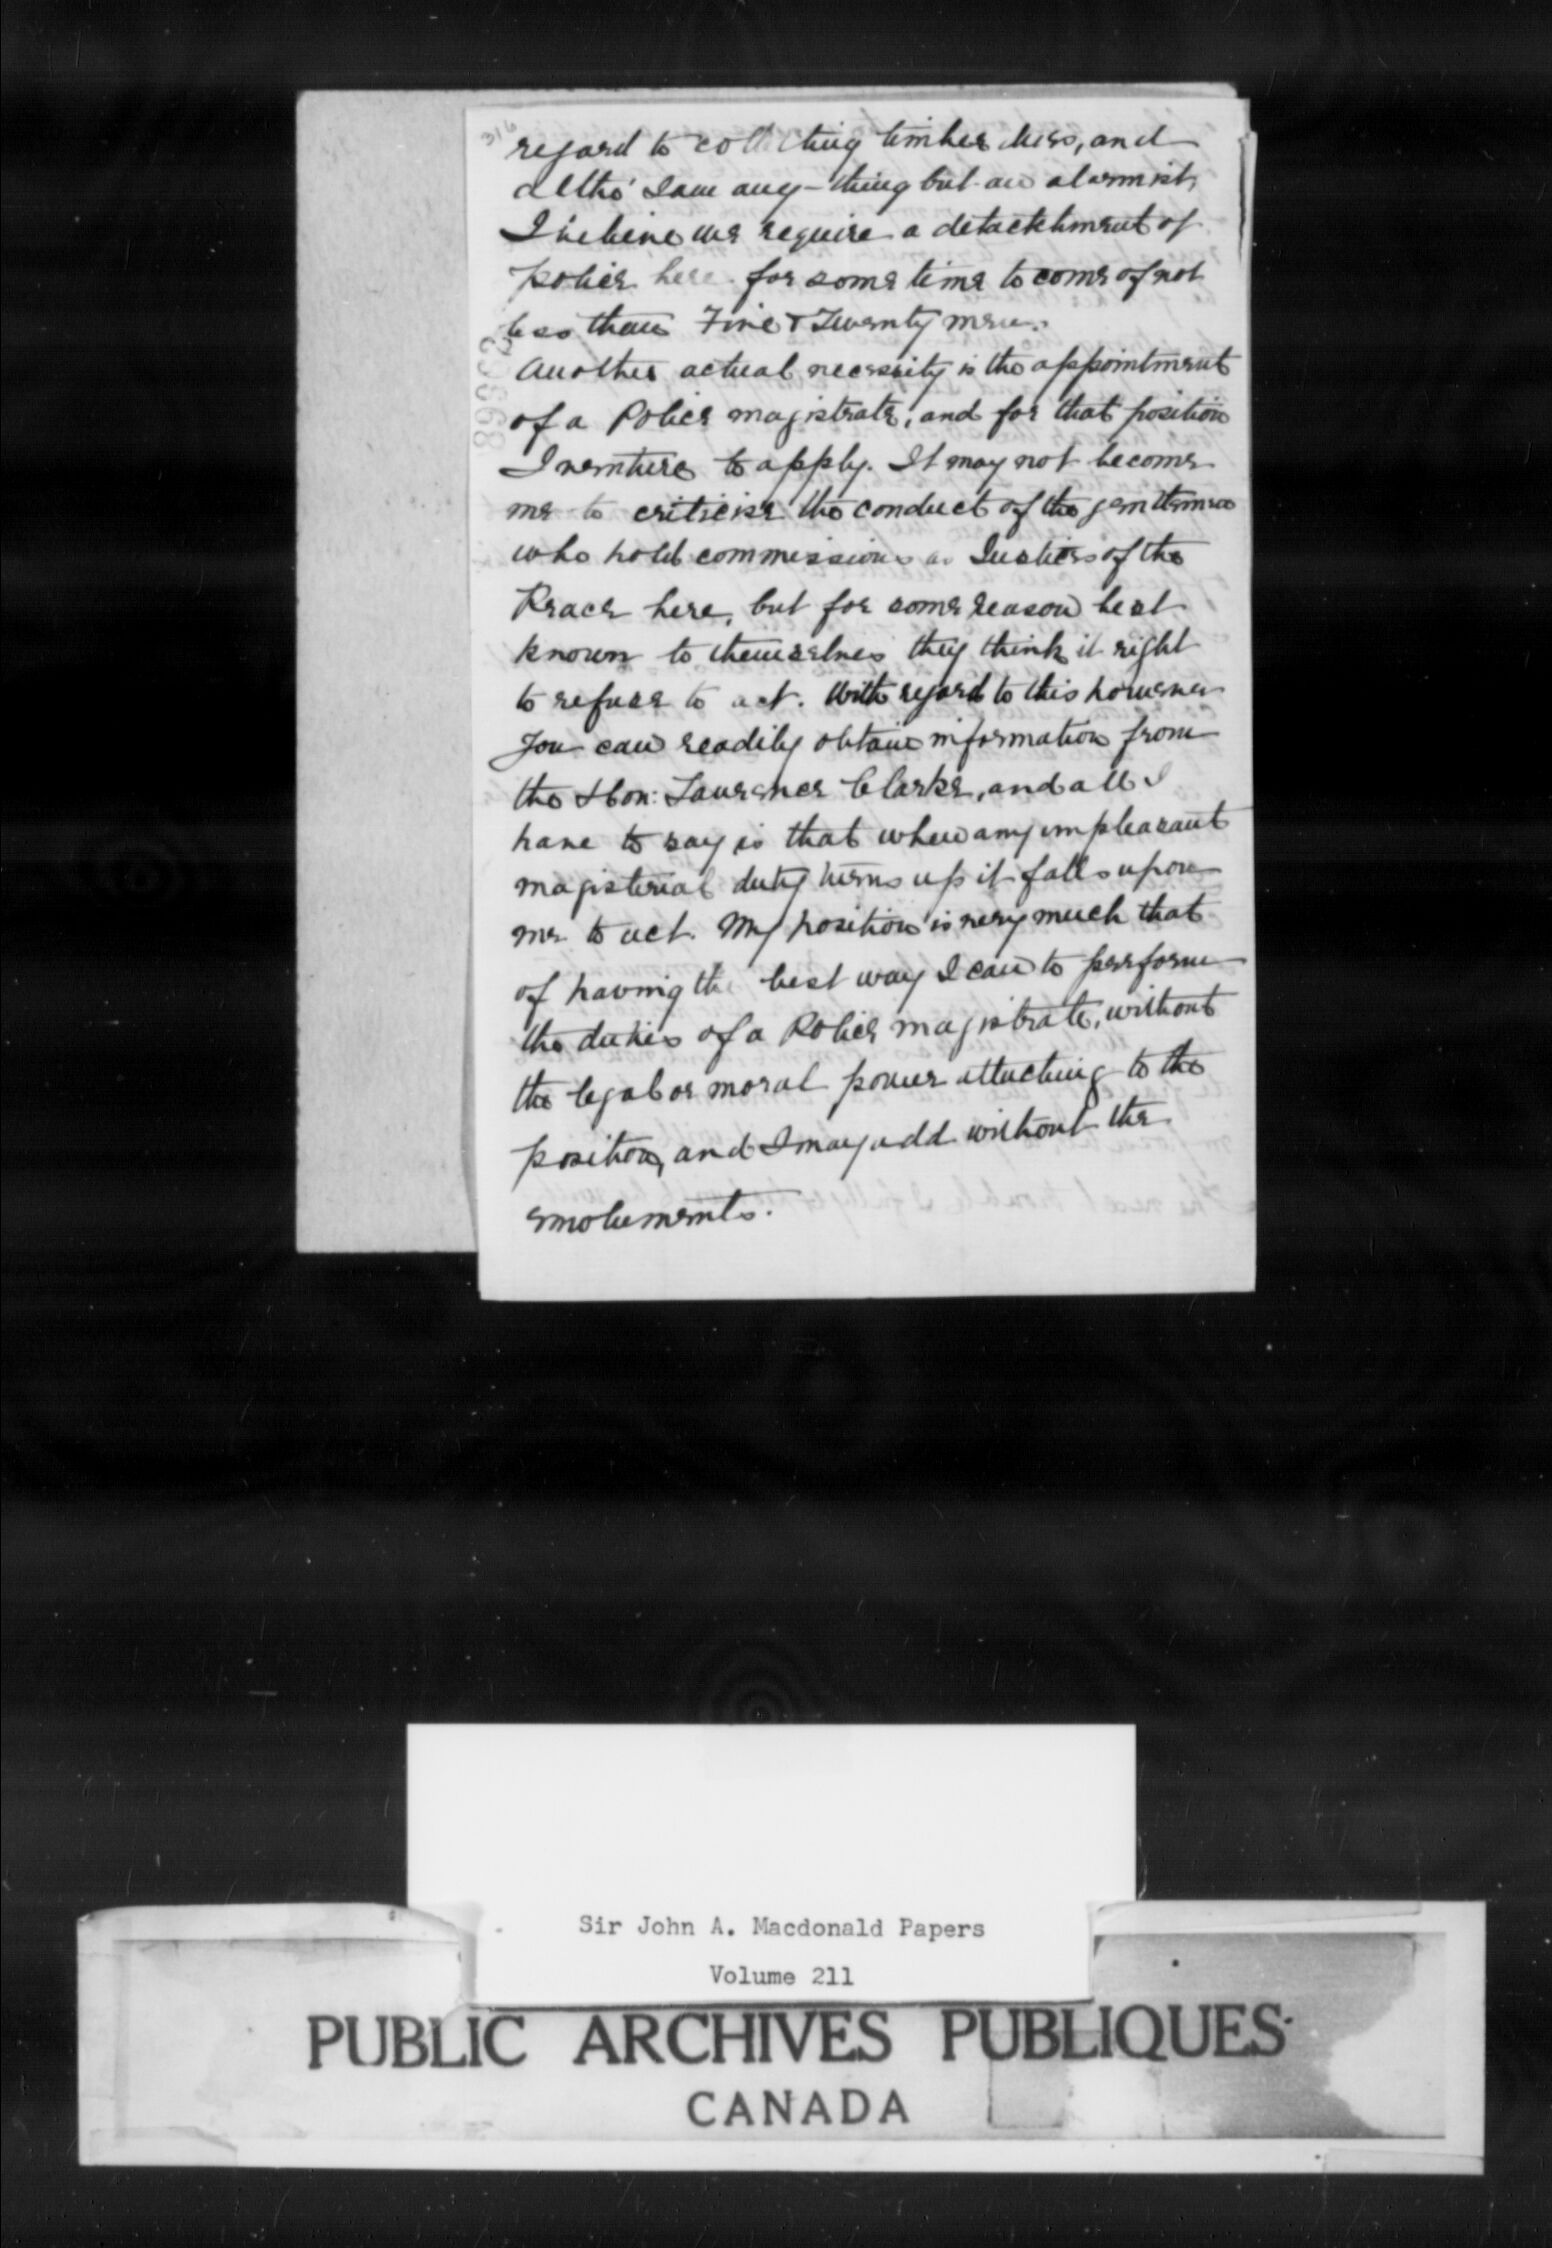 316
regard to collecting timber dues, and
altho' I am any-thing but an alarmist,
I believe we require a detatchment of
police here for some time to come of not
less than Five & Twenty men.
Another actual necessity is the appointment
of a Police magistrate, and for that position
I venture to apply. It may not become
me to criticise the conduct of the gentlemen
who hold commissions as Justices of the
Peace here, but for some reason best
known to themselves they think it right
to refuse to act. With regard to this however
you can readily obtain information from
the Hon: Lawrence Clarke, and all I
have to say is that when any unpleasant
magisterial duty turns up it falls upon
me to act. My position is very much that
of having the best way I can to perform
the duties of a Police magistrate, without
the legal or moral power attaching to the
position, and I may add without the
emoluments.
Sir John A. Macdonald Papers
Volume 211
PUBLIC ARCHIVES PUBLIQUES
CANADA